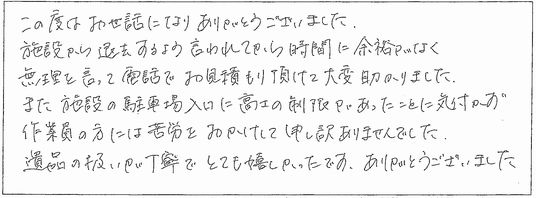 この度はお世話になりありがとうございました.
施設から退去するよう言われてから時間に余裕がなく
無理を言って電話でお見積もり頂けて大変助かりました.
また施設の駐車場入口に高さの制限があったことに気付かず
作業員の方には苦労をおかけして申し訳ありませんでした.
遺品の扱いが丁寧でとても嬉しかったです、ありがとうございました